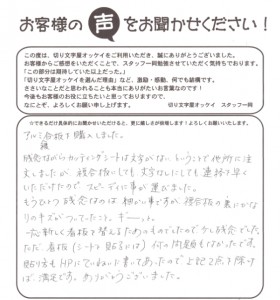 お客様の声をお聞かせください！
この度は、切り文字屋オッケイをご利用いただき、誠にありがとうございました。
お客様からご感想をいただくことで、スタッフ一同勉強させていただく気持ちでおります。
「この部分は期待していた以上だった。」
「切り文字屋オッケイを選んだ理由」など、激励・感動、何でも結構です。
ささいなことだと思われることも本当にありがたいお言葉なのです！
今後もお客様のお役に立ちたいと思っておりますので、
なにとぞ、よろしくお願い申し上げます。
切り文字屋オッケイ スタッフ一同
☆できるだけ具体的にお聞かせいただけると、更に嬉しさが倍増します！よろしくお願いいたします。
アルミ複合板を購入しました。
残念ながらカッティングシートは文字がないということで他所に注
文しましたが、複合板にしても文字なしにしても連絡を早く
いただけたので スピーディに事が運びました。
もうひとつ残念なのは 細かい事ですが、複合板の裏にかな
りのキズがついていたこと。
新しく看板を替えるためのものでしたので少し残念でした。
ただ、看板（シートを貼るには）何の問題もなかったです。
貼り方もHPにていねいに書いてあったので上記2点を除け
ば、満足です。ありがとうございました。